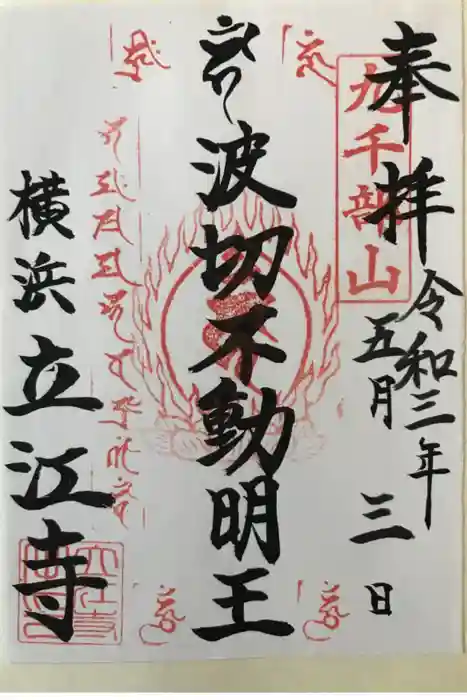 奉拝
九千部山
令和三年
五月三日
波切不動明王
横浜立江寺